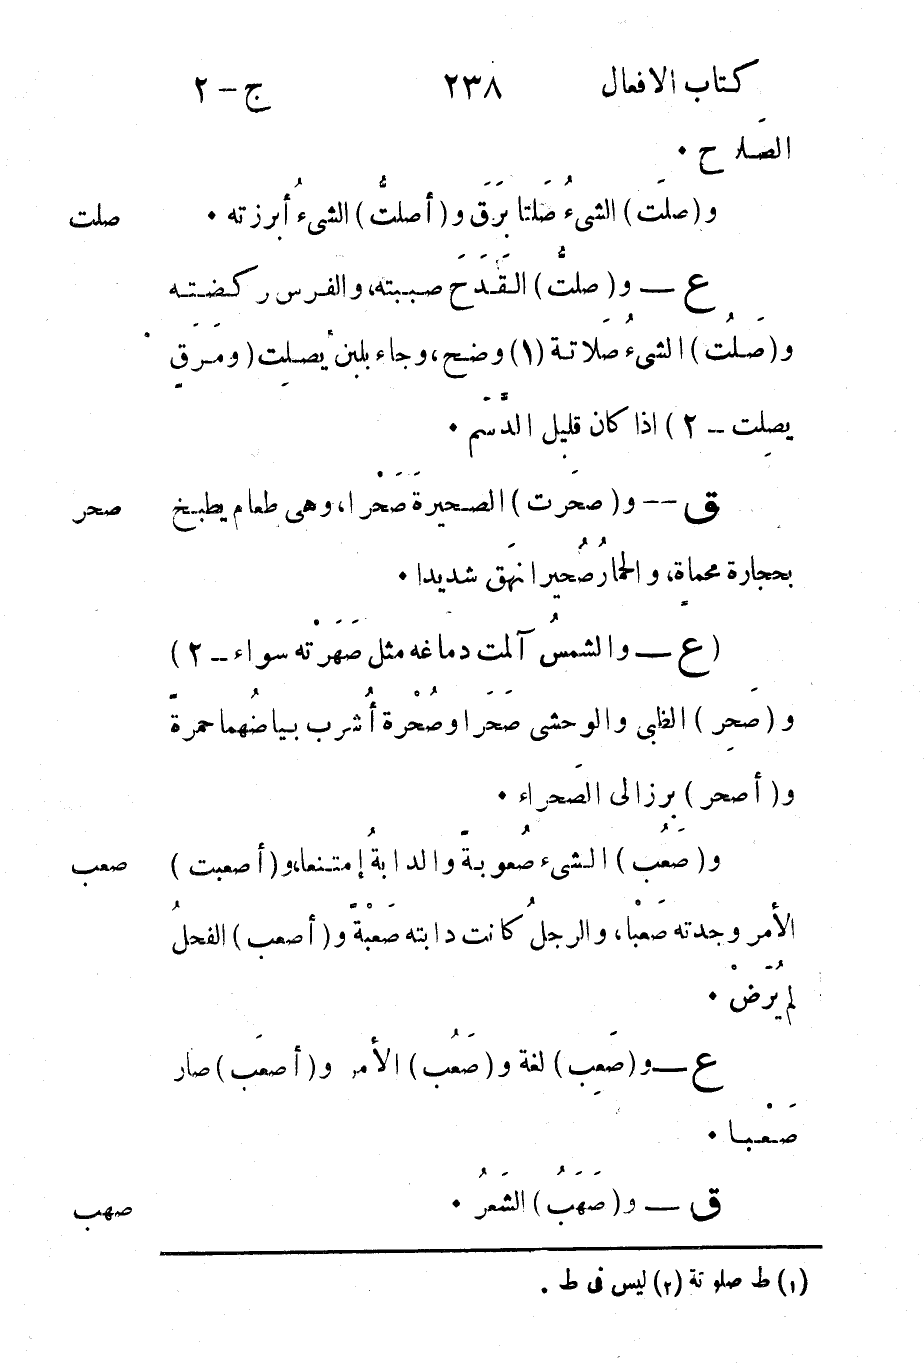 كتاب الافعال ٢٣٨ ج – ٢
الصَلاح •
و (صلَت) الشيءُ صَلتا بَرَقَ و (أصلتُّ) الشيءَ أبرزته • صلت
ع — و (صلتُّ) القَدَحَ صببته، والفرس ركضته
و (صَلُت) الشيءُ صَلَاتة (١) وضح، وجاء بلبن يصلِت (ومَرَقٍ
يصلِت – ٢) اذا كان قليل الدَّسَم •
ق – و (صحَرت) الصحيرةَ صَحْرا، وهى طعام يطبخ صحر
بحجارة محماة، والحمارُ صُحيرا نهَق شديدا •
(ع — والشمسُ آلمت دماغه مثل صَهَرَتْه سواء – ٢)
و (صَحِر) الظبى والوحشى صَحَرا وصُحْرة أُشرب بياضُهما حمرةً
و (أصحر) برز الى الصَحراء •
و (صَعُب) الشىء صُعوبةً والدابةُ إمتنعا، و (أصعبت) صعب
الأمرَ وجدته صَعْبا، والرجلُ كانت دابته صَعْبَةً و (أصعب) الفحلُ
لم يُرَضْ •
ع — و (صَعِب) لغة و (صَعُب) الأمرُ و (أصعَب) صار
صَعْبا •
ق — و (صَهَبُ) الشَعرُ • صهب
(١) ط صلوتة (٢) ليس فى ط .